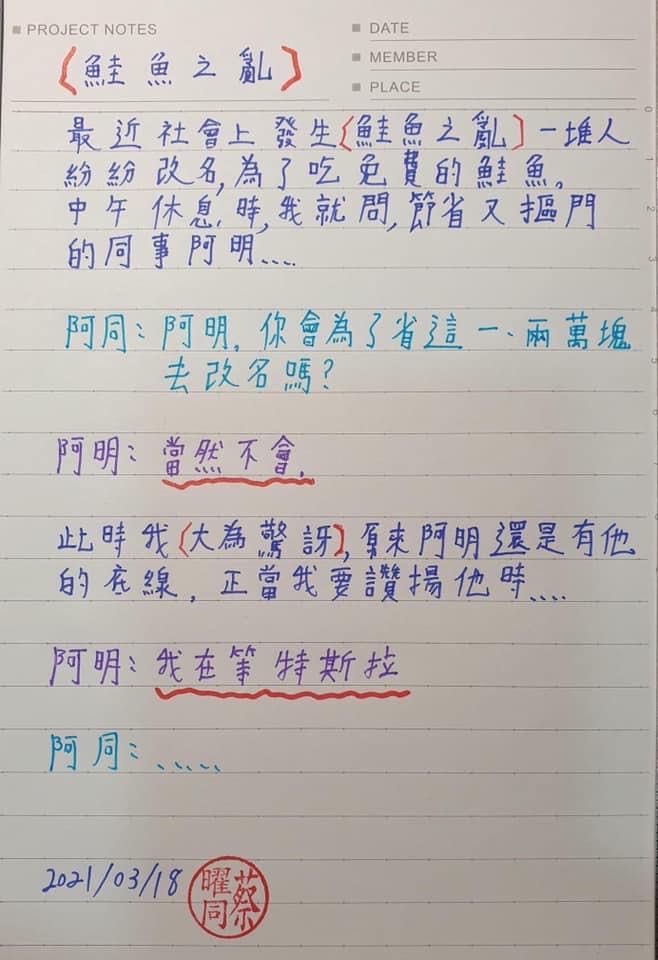 PROJECT NOTES
DATE
MEMBER
PLACE
{鮭魚之亂}
最近社會上發生{鮭魚之亂}一堆人
紛紛改名,為了吃免費的鮭魚。
中午休息時,我就問,節省又摳門
的同事阿明....
阿同:阿明,你會為了省這一、兩萬塊
去改名嗎?
阿明:當然不會.
此時我{大為驚訝},原來阿明還是有他
的底線,正當我要讚揚他時....
阿明:我在等特斯拉
阿同:.....
2021/03/18
蔡曜同
0
1
2
3
4
5